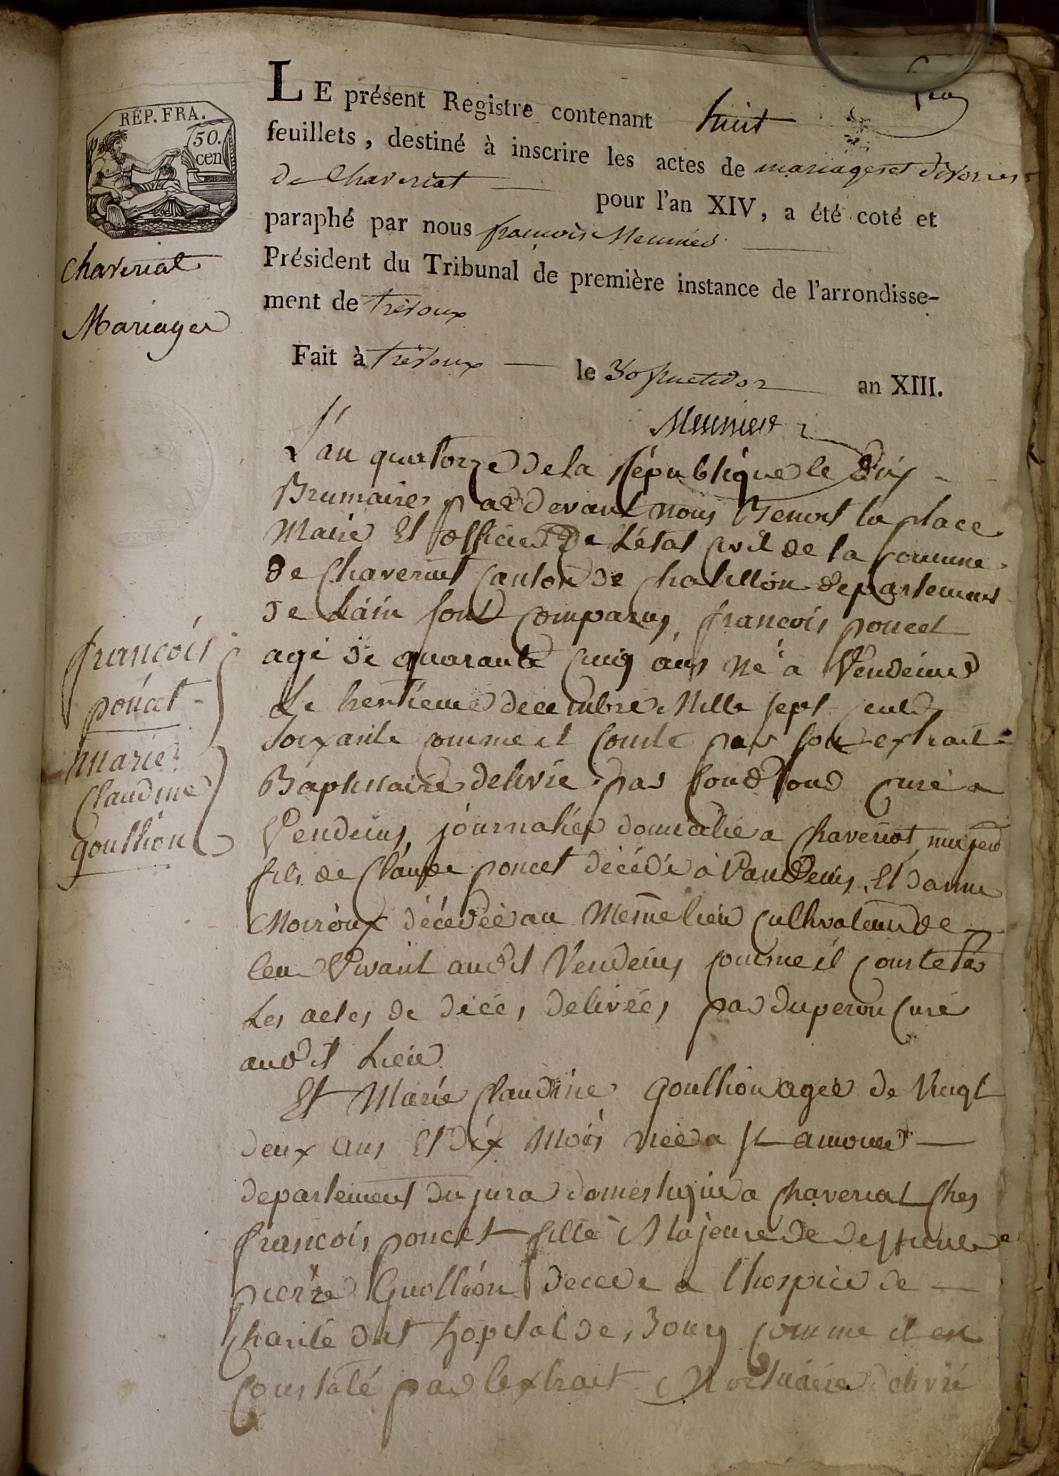 RÉP. FRA.
50.
cen
Chaveriat
Mariages
LE présent Registre contenant huit
feuillets, destiné à inscrire les actes de mariages et divorces
de Chaveriat pour l'an XIV, a été coté et
paraphé par nous françois Meunier
Président du Tribunal de première instance de l'arrondisse-
ment de trévoux
Fait à trévoux le 30 fructidor an XIII.
Meunier
L'an quatorze de la République le dix
Brumaire pardevant nous Benoit la place
Maire Et officier De L'état Civil de la Commune
de Chaveriat Canton de Chatillon departement
de L'ain sont Comparus, françois poncet
agé de quarante Cinq ans né a Vendeins
Le trentieme decembre Mille sept Cent
soixante comme il Conste par son extrait
Baptistaire delivré par curé a
Vendeins journalier domicilié a Chaveriat,
fils de Claude poncet décédé a Vandeins, Et d'anne
Moiroux décédée au Mesme lieu Cultivateur de
leur Vivant audit Vendeins comme il Conste par
Les actes de décés délivrées par duperon Curé
audit Lieu
Et Marie Claudine Goullion agée de Vingt
deux ans Et dix Mois née a St amour
departement du jura domestique a Chaveriat Ches
françois poncet fille Majeure de deffunt
pierre Guollion décédé a l'hospice de
Charité dit hopital de Bourg Comme il est
Constaté par l'extrait Mortuaire délivré
françois
poncet
marie
Claudine
goullion